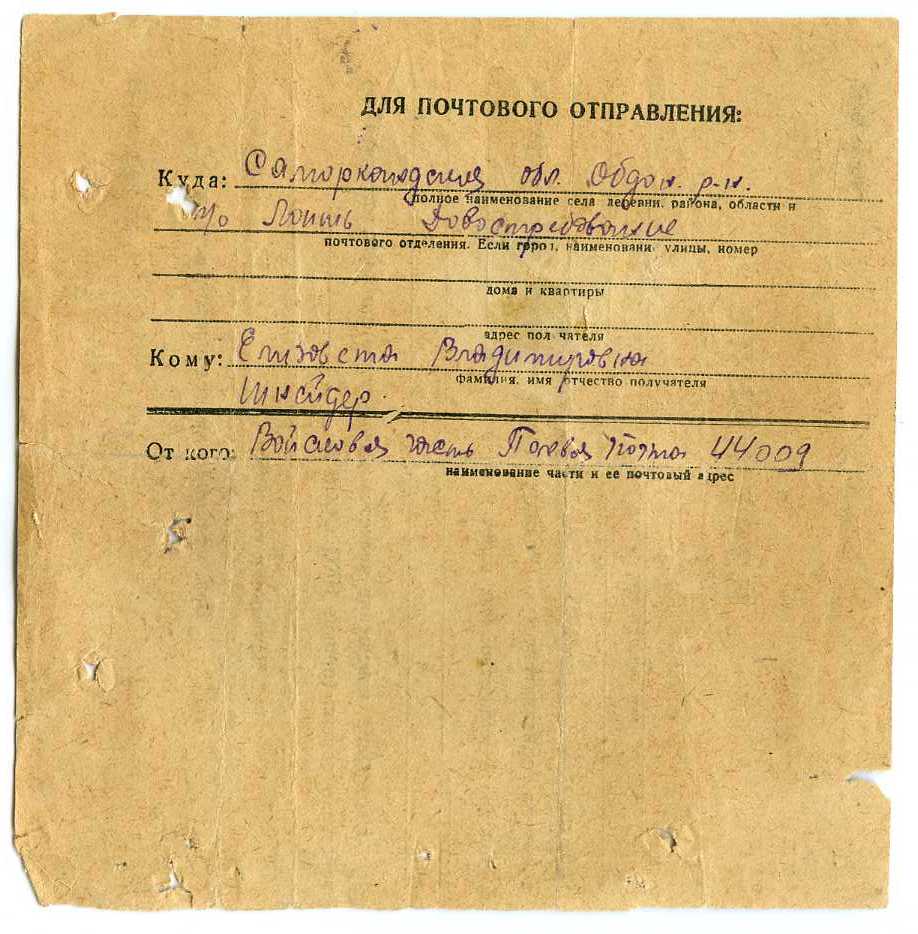 ДЛЯ ПОЧТОВОГО ОТПРАВЛЕНИЯ:
Куда: Самаркандская обл. Обдон. р-н.
полное наименование села деревни, района, области и
п/о Довостребование
почтового отделения. Если город, наименовани улицы, номер
дома и квартиры
адрес пол чателя
Кому: Елизовета Владимировна
фамилия, имя отчество получателя
Шнейдер.
От кого: Войсковая часть Полевая Почта 44009
наименование части и ее почтовый адрес